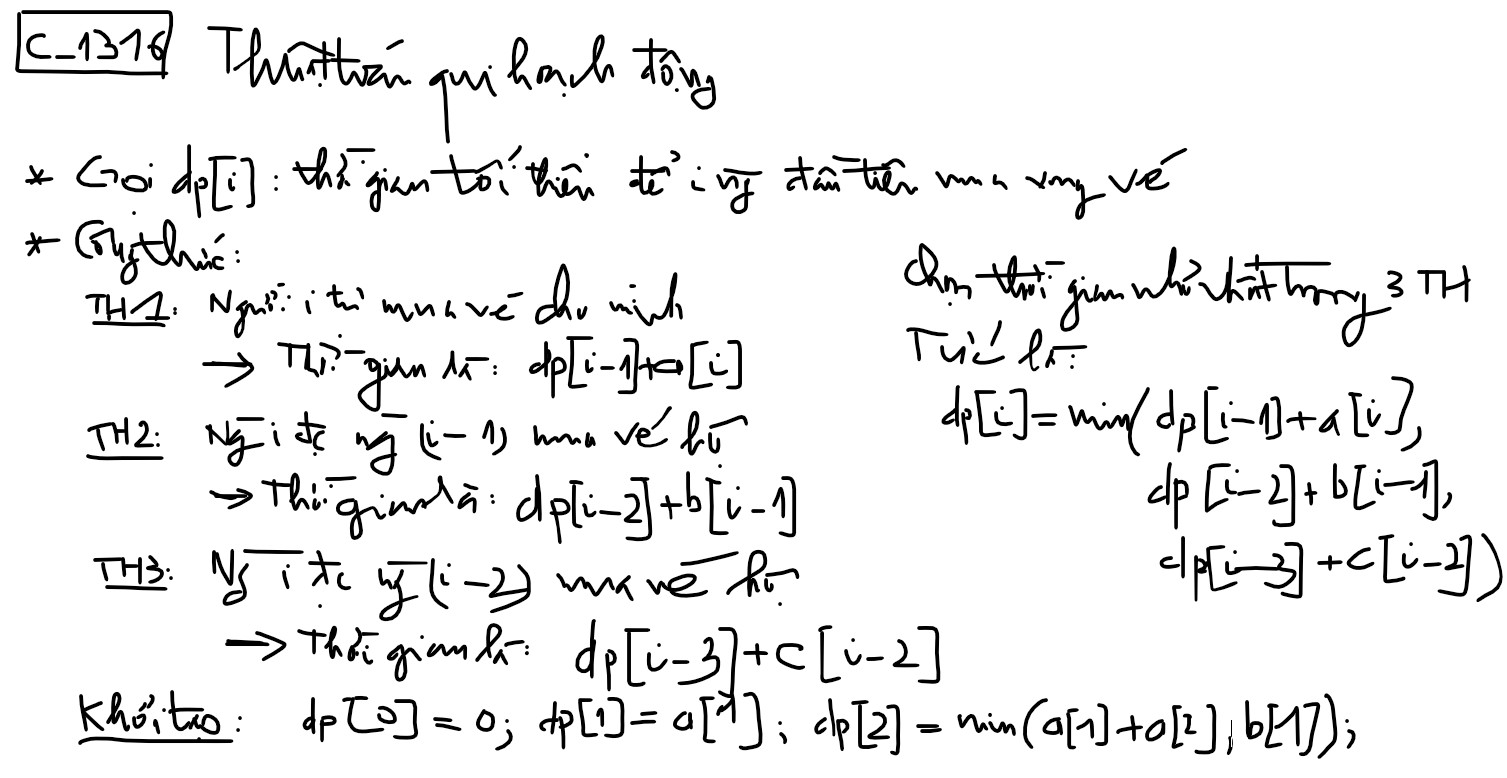 C_1316 Thuật toán qui hoạch động
* Gọi dp[i]: thời gian tối thiểu để i ng đầu tiên mua xong vé
* Công thức:
TH1: Người i tự mua vé cho mình
→ Thời gian là: dp[i-1]+a[i]
TH2: Ng i đc ng (i-1) mua vé hộ
→ Thời gian là: dp[i-2]+b[i-1]
TH3: Ng i đc ng (i-2) mua vé hộ
→ Thời gian là: dp[i-3]+c[i-2]
Chọn thời gian nhỏ nhất trong 3 TH
Tức là:
dp[i]=min(dp[i-1]+a[i],
dp[i-2]+b[i-1],
dp[i-3]+c[i-2])
Khởi tạo: dp[0]=0; dp[1]=a[1]; dp[2]=min(a[1]+a[2], b[1]);